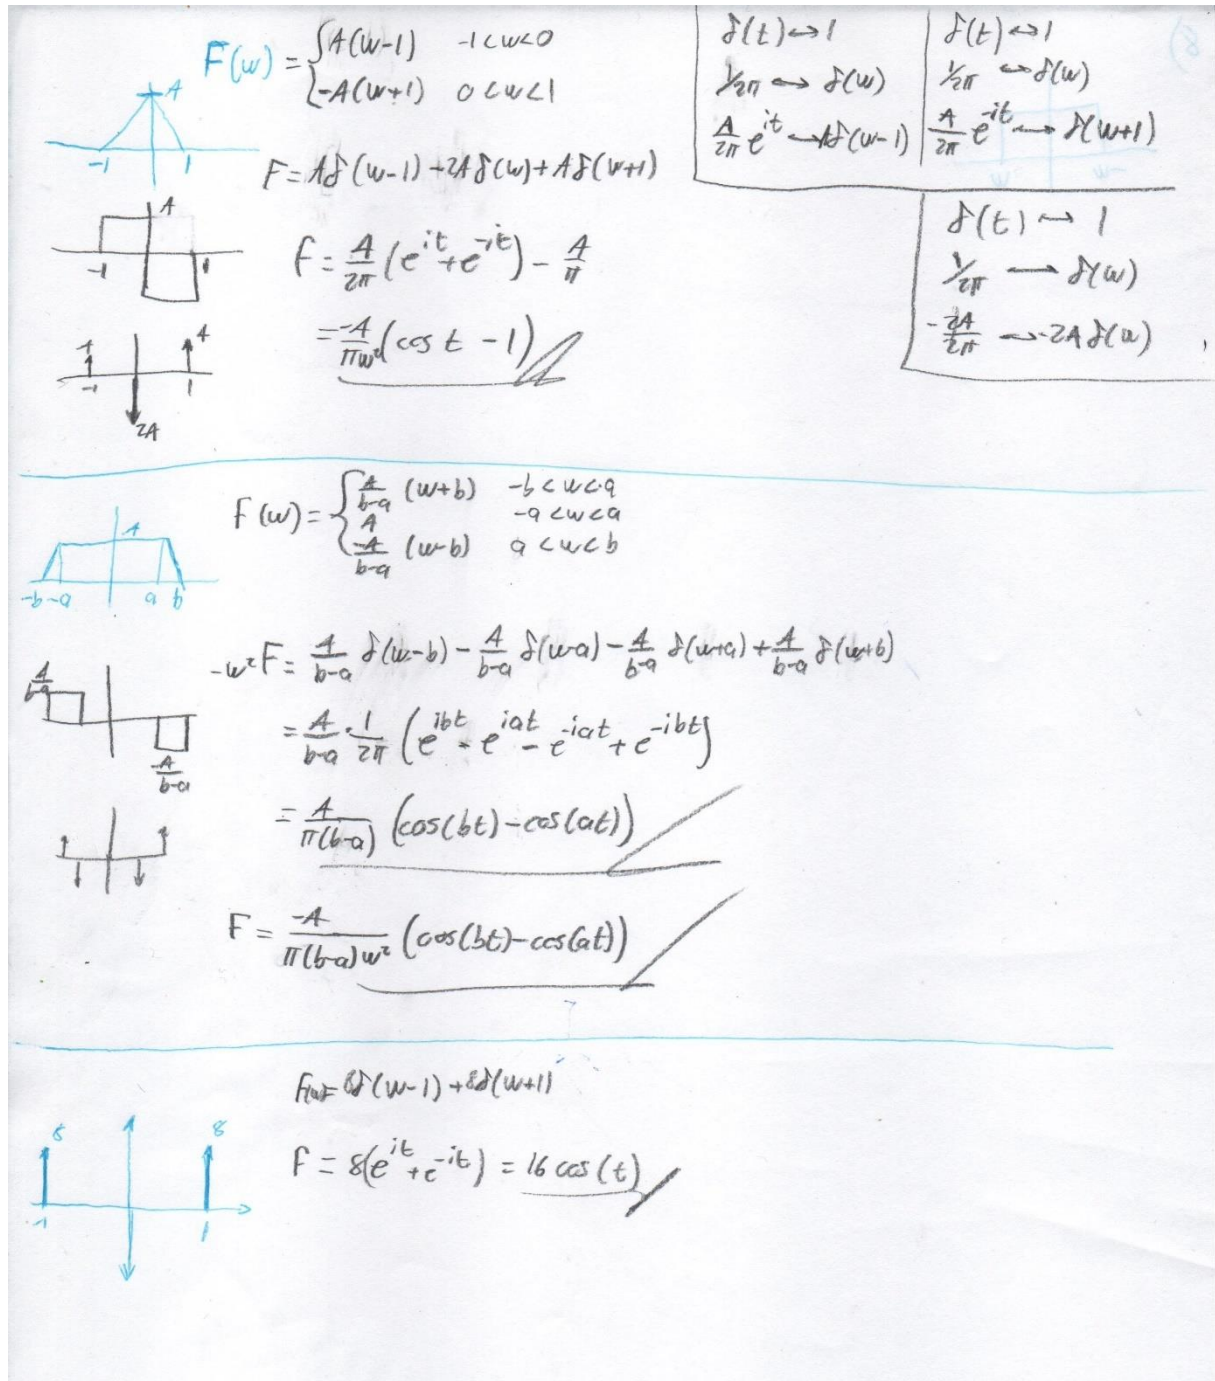 F(w) = { A(w-1)   -1<w<0
{ -A(w+1)   0<w<1
A
-1   1
F = Aδ(w-1) +2Aδ(w)+Aδ(w+1)
A
-1   1
F = A/2π (e^it + e^-it) - A/π
= -A/πw² (cos t - 1)
A   A
-1   1
2A
δ(t) ↔ 1
1/2π ↔ δ(w)
A/2π e^it ↔ Aδ(w-1)
δ(t) ↔ 1
1/2π ↔ δ(w)
A/2π e^-it ↔ δ(w+1)
δ(t) ↔ 1
1/2π ↔ δ(w)
-2A/2π ↔ -2Aδ(w)
F(w) = { A/b-a (w+b)   -b<w<a
A   -a<w<a
-A/b-a (w-b)   a<w<b
A
-b -a   a b
-w²F = A/b-a δ(w-b) - A/b-a δ(w-a) - A/b-a δ(w+a) + A/b-a δ(w+b)
A/b-a
-A/b-a
= A/b-a · 1/2π (e^ibt - e^iat - e^-iat + e^-ibt)
= A/π(b-a) (cos(bt)-cos(at))
F = -A/π(b-a)w² (cos(bt)-cos(at))
F(w)= 8δ(w-1) +8δ(w+1)
8   8
-1   1
F = 8(e^it + e^-it) = 16 cos(t)